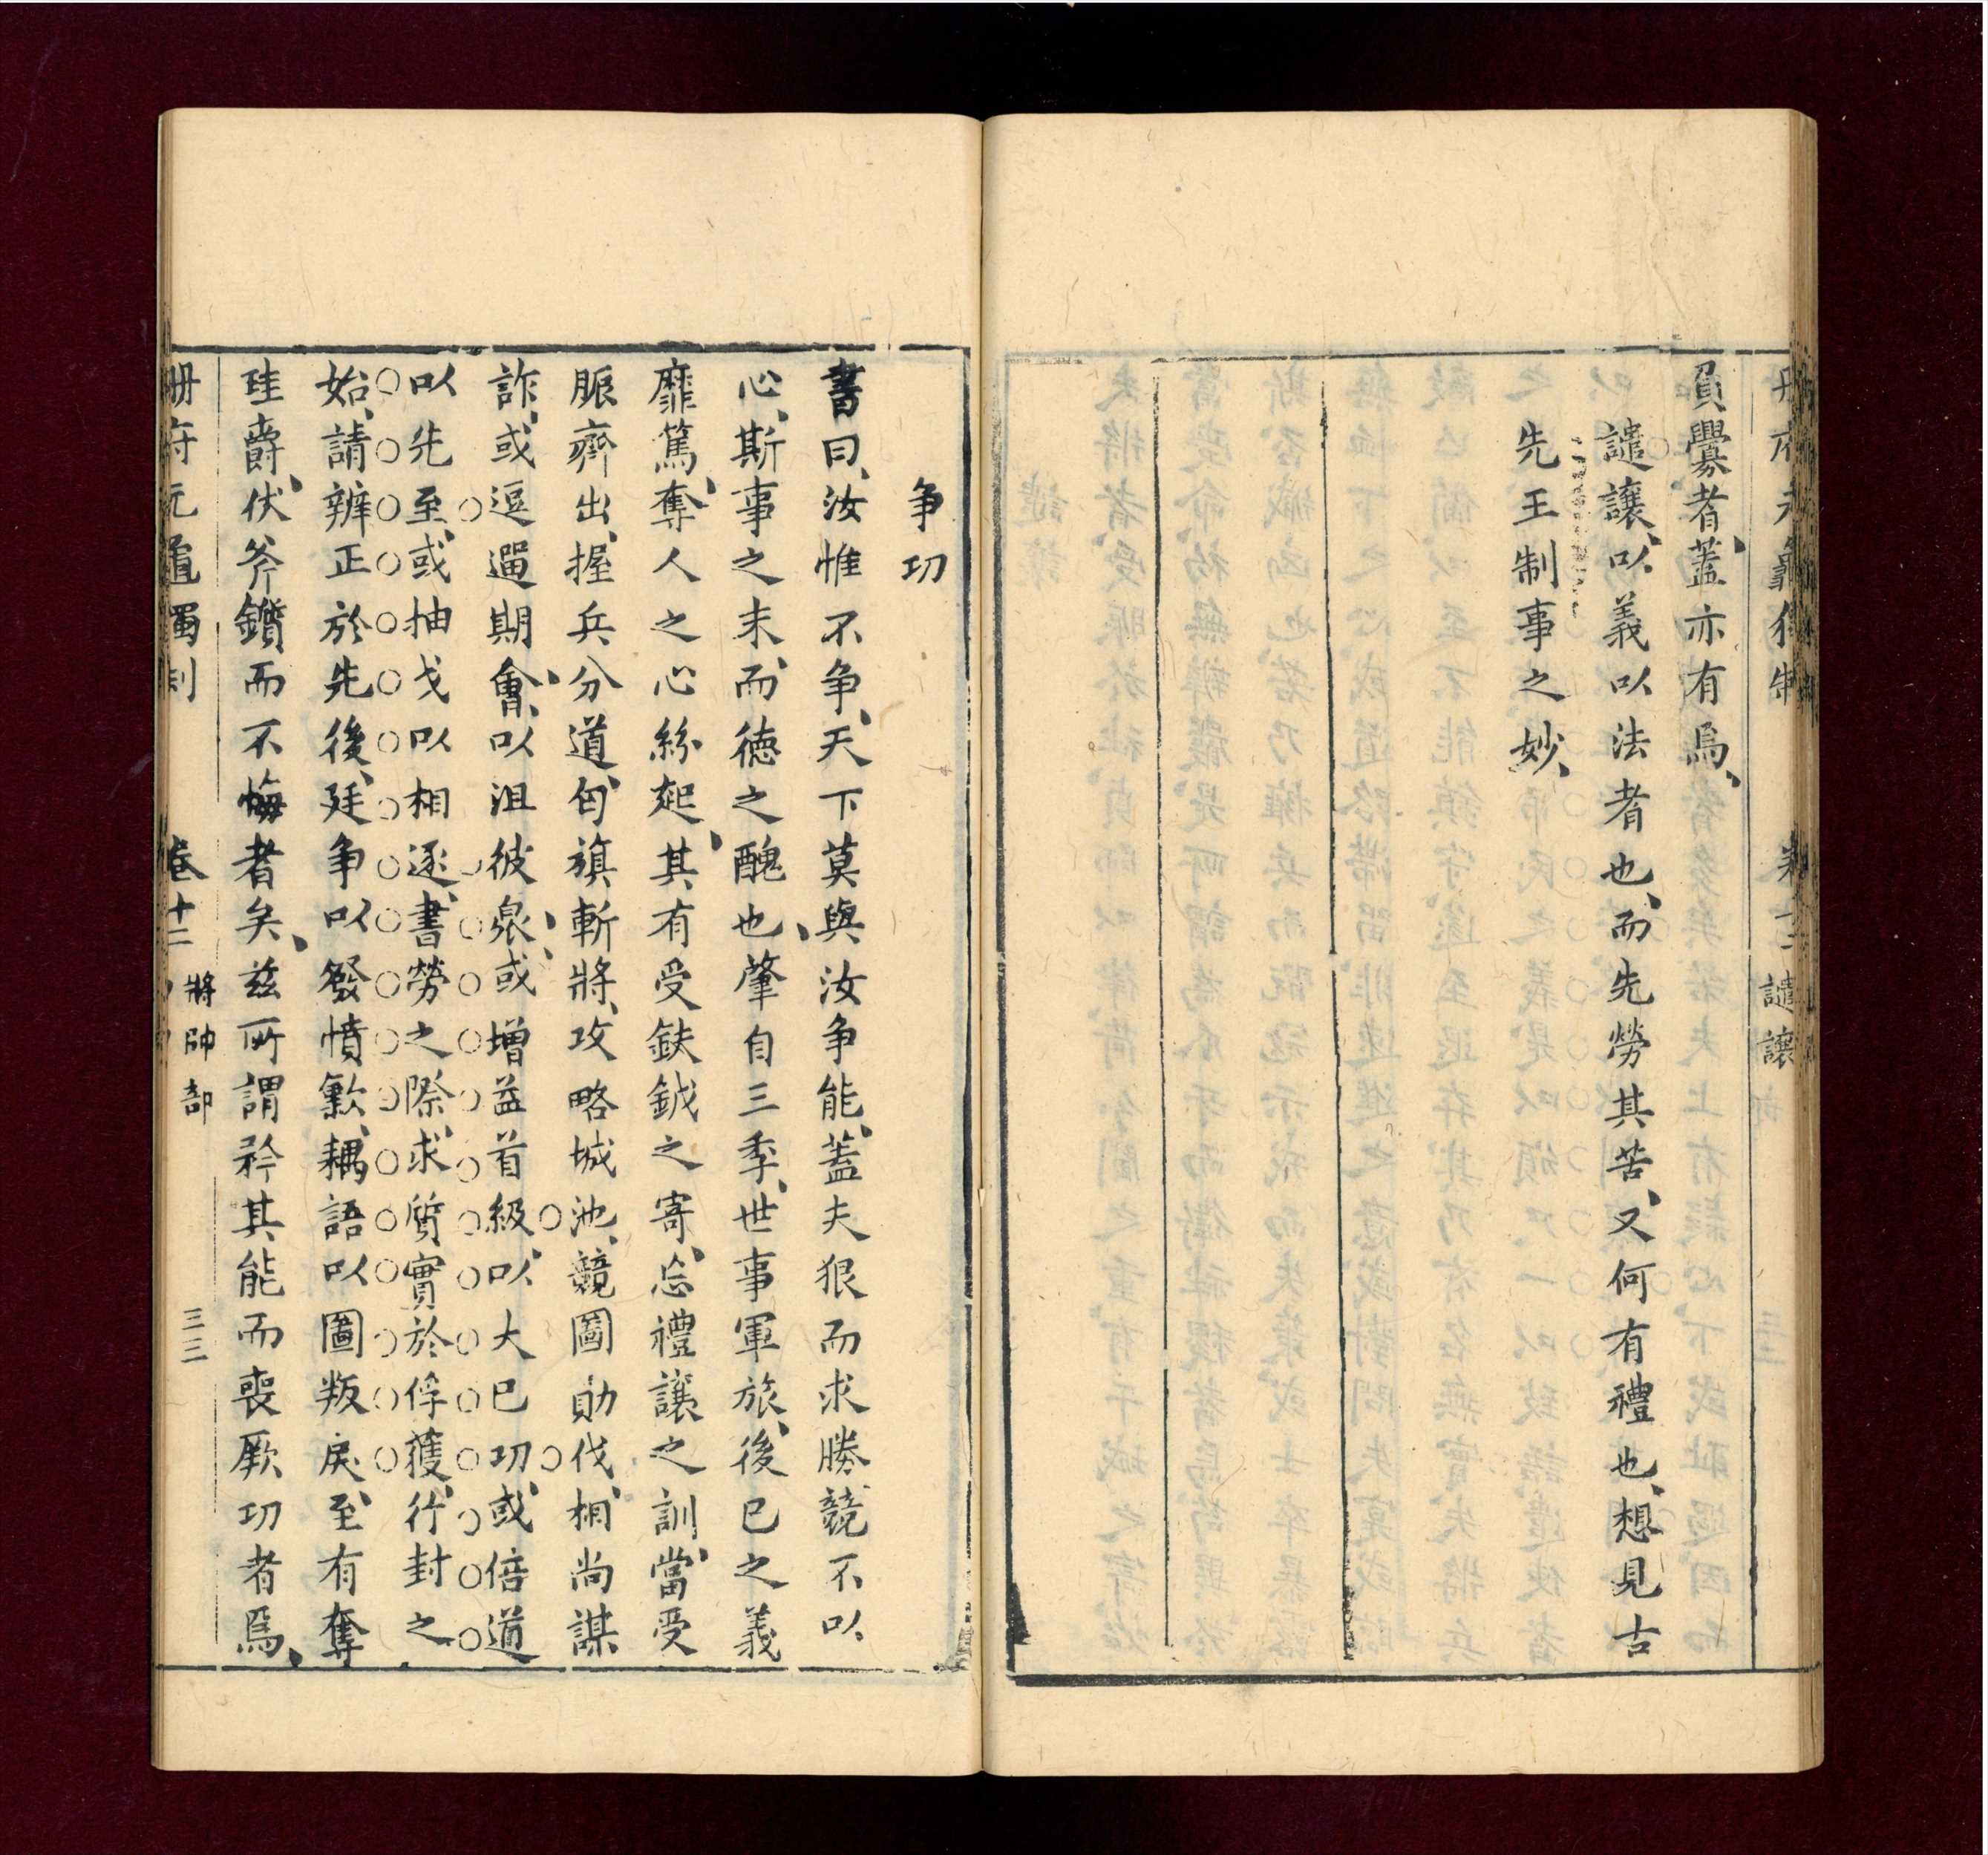 負釁者、蓋亦有焉、
譴讓、以義以法者也、而先勞其苦、又何有禮也、想見古
先王制事之妙、
譴讓
争功
書曰、汝惟不争、天下莫與汝争能、蓋夫狠而求勝競不以
心、斯事之末、而德之醜也、肇自三季、世事軍旅、後已之義
靡篤、奪人之心紛起、其有受鈇鉞之寄、忘禮讓之訓、當受
脤齊出、握兵分道、匄旗斬將、攻略城池、競圖勛伐、相尚謀
詐、或逗遛期會、以沮彼衆、或增益首級、以大已功、或倍道
以先至、或抽戈以相逐、書勞之際、求質實於俘獲、行封之
始、請辨正於先後、廷争以發憤歎、耦語以圖叛戾、至有奪
珪爵、伏斧鑕而不悔者矣、茲所謂矜其能而喪厥功者焉、
册府元龜獨制 卷十二 將帥部 三三